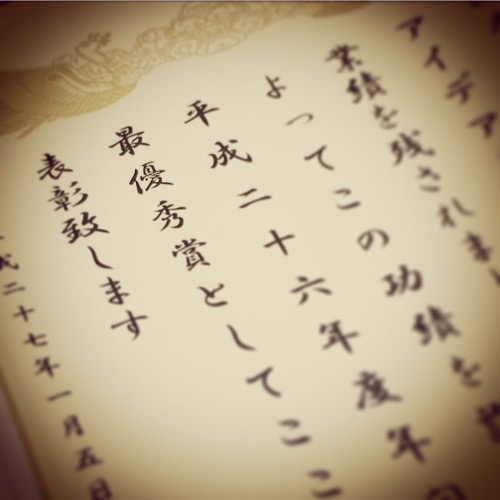 アイデア
業績を残されまし
よってこの功績を
平成二十六年度年
最優秀賞としてここ
表彰致します
成二十七年一月五日